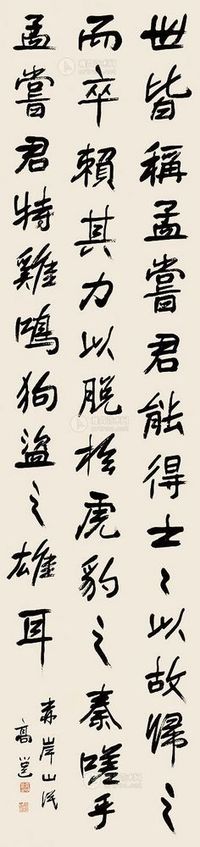 世皆稱孟嘗君能得士〻以故歸之
而卒賴其力以脱於虎豹之秦嗟乎
孟嘗君特雞鳴狗盜之雄耳
赤岸山民
高邕